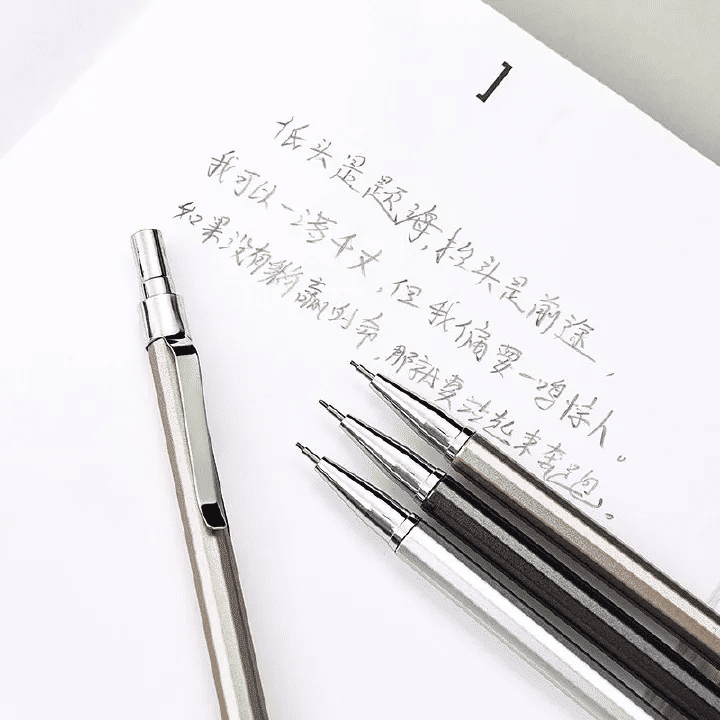 低头是题海,抬头是前途,
我可以一落千丈,但我偏要一鸣惊人。
如果没有躺赢的命,那就要站起来奔跑。